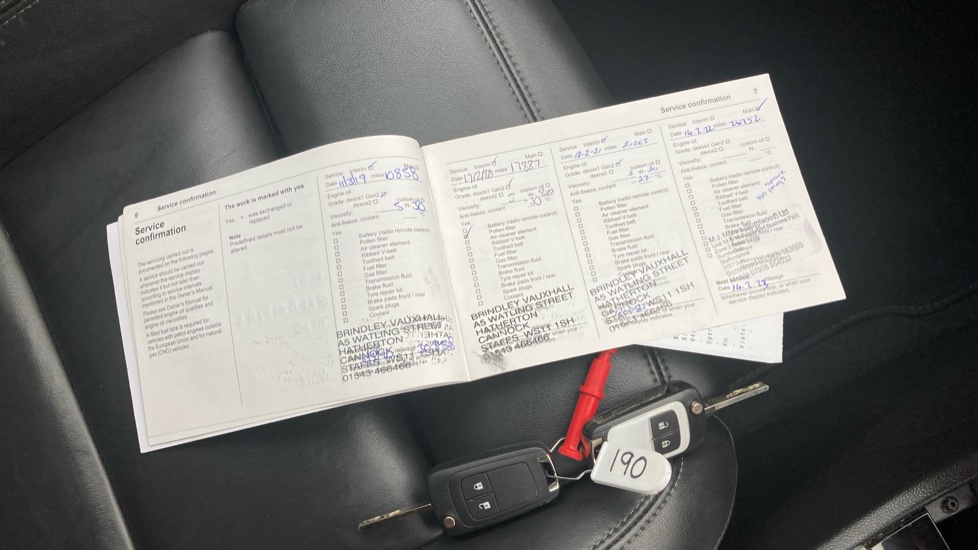 6 Service confirmation
Service
confirmation
The servicing carried out is
documented on the following pages.
A service should be carried out
whenever the service display
indicates it but not later than
according to service intervals
mentioned in the Owner's Manual.
Please see Owner's Manual for
permitted engine oil qualities and
engine oil viscosities.
The work is marked with yes
Yes = was exchanged or
replaced.
Predefined details must not be
altered.
Service: Interim Main
Date 11/3/19 miles 10858
Engine oil
Grade: dexos1 Gen2 custom oil
dexos2
Viscosity: 5 W- 30
Anti-freeze, coolant
Yes
Battery (radio remote control)
Pollen filter
Air cleaner element
Ribbed V-belt
Toothed belt
Fuel filter
Gas filter
Transmission fluid
Brake fluid
Tyre repair kit
Brake pads front / rear
Spark plugs
Coolant
BRINDLEY VAUXHALL
A5 WATLING STREET
HATHERTON
CANNOCK
STAFFS WS11 1SH
01543 466466
Service: Interim Main
miles 17887
Engine oil
Grade: dexos1 Gen2 custom oil
dexos2
Viscosity:
Anti-freeze, coolant
Yes
Battery (radio remote control)
Pollen filter
Air cleaner element
Ribbed V-belt
Toothed belt
Fuel filter
Gas filter
Transmission fluid
Brake fluid
Tyre repair kit
Brake pads front / rear
Spark plugs
Coolant
BRINDLEY VAUXHALL
A5 WATLING STREET
HATHERTON
CANNOCK
STAFFS WS11 1SH
01543 466466
Service: Interim Main
Date 12-2-21 miles 21265
Engine oil
Grade: dexos1 Gen2 custom oil
dexos2
Viscosity:
Anti-freeze, coolant
Yes
Battery (radio remote control)
Pollen filter
Air cleaner element
Ribbed V-belt
Toothed belt
Fuel filter
Gas filter
Transmission fluid
Brake fluid
Tyre repair kit
Brake pads front / rear
Spark plugs
BRINDLEY VAUXHALL
A5 WATLING STREET
HATHERTON
WS11 1SH
01543 466466
Service confirmation 7
Service: Interim Main
Date 14.2.22 miles 26352
Engine oil
Grade: dexos1 Gen2 custom oil
dexos2
Viscosity:
Anti-freeze, coolant
Yes
Battery (radio remote control)
Pollen filter
Air cleaner element
Ribbed V-belt
Toothed belt
Fuel filter
Gas filter
Transmission fluid
Whichever occurs first, or when your
service display indicates.
190